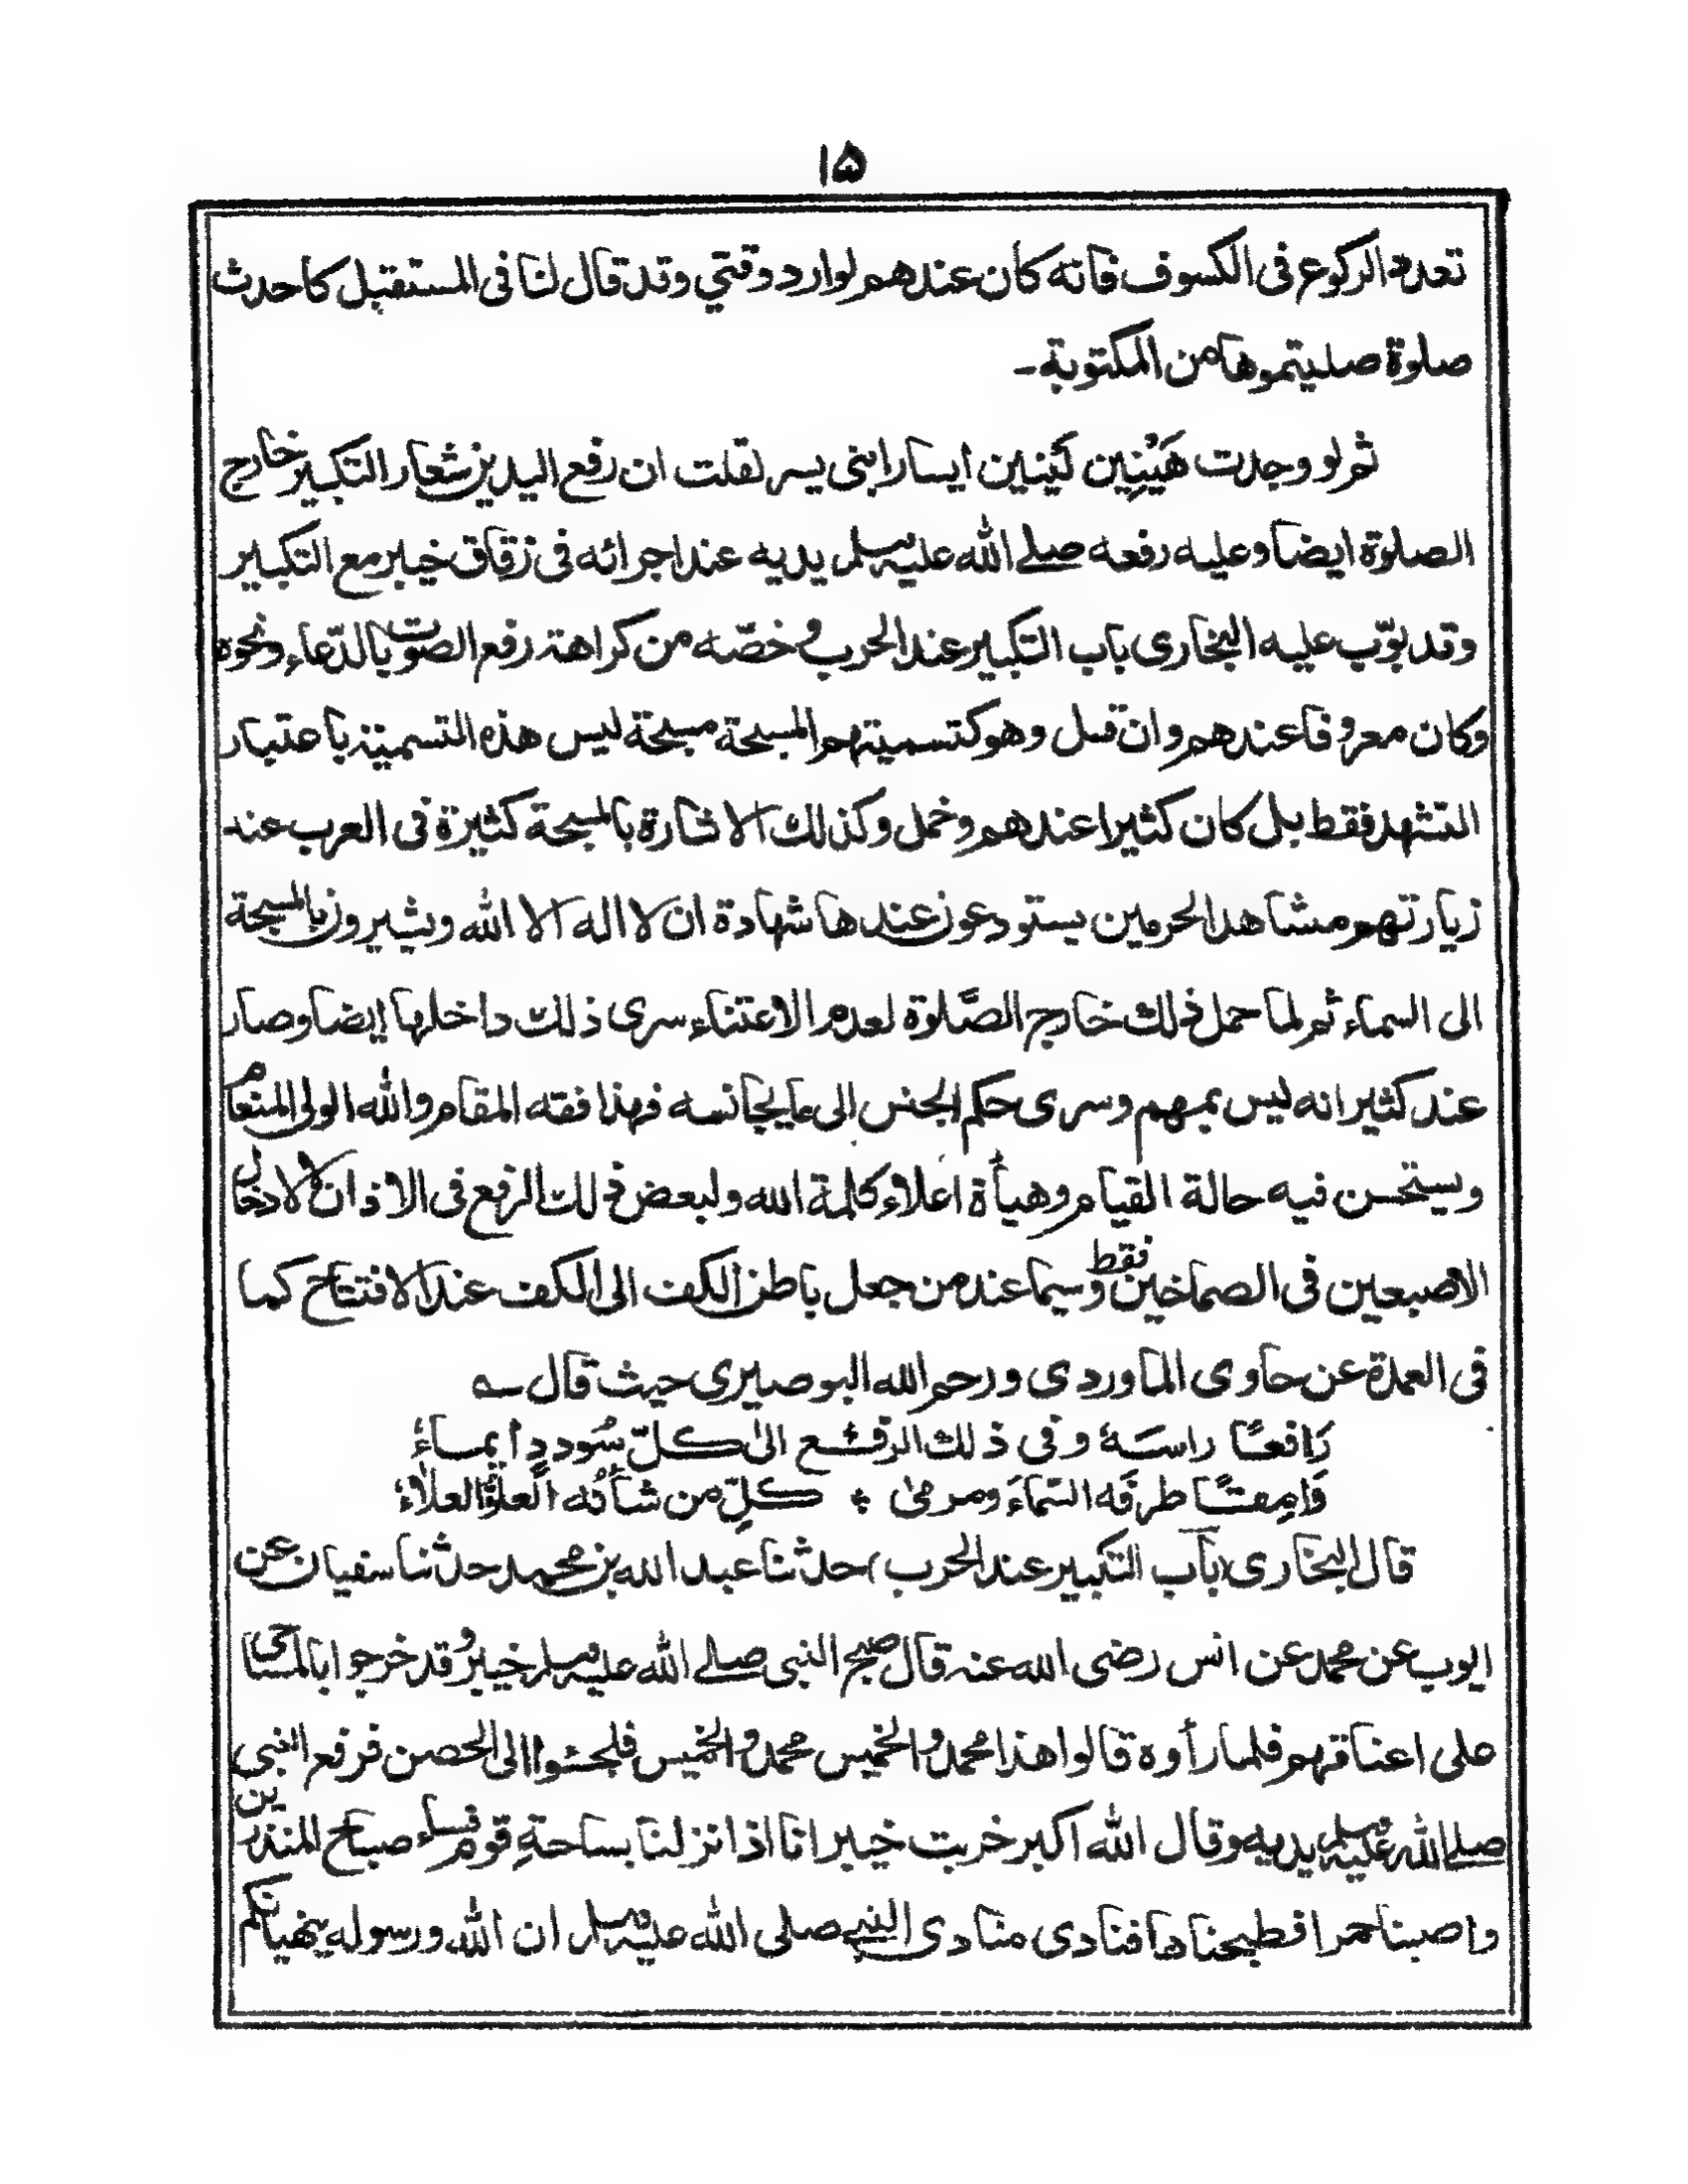 ۱۵
تعدد الركوع فى الكسوف فانه كان عندهم لوارد وقتي وقد قال لنا فى المستقبل كاحدث
صلوة صليتموها من المكتوبة۔
ثم لو وجدت هَيْنِين لَيّنين ايسارا بنى يسر لقلت ان رفع اليدين شعار التكبير خارج
الصلوة ايضا وعليه رفعه صلے الله عليه وسلم يديه عند اجرائه فى زقاق خيبر مع التكبير
وقد بوّب عليه البخارى باب التكبير عند الحرب وخصّه من كراهة رفع الصوت بالدّعاء ونحوه
وكان معروفا عندهم وان قل وهو كتسميتهم المسبحة مسبحة ليس هذه التسمية باعتبار
التشهد فقط بل كان كثيرا عندهم وخمل وكذلك الاشارة بالمسبحة كثيرة فى العرب عند
زيارتهم مشاهد الحرمين يستودعون عندها شهادة ان لا اله الا الله ويشيرون بالمسبحة
الى السماء ثم لما حمل ذلك خارج الصَّلوة لعدم الاعتناء سرى ذلك داخلها ايضا وصار
عند كثير انه ليس بمهم وسرى حكم الجنس الى ما يجانسه فهذا فقه المقام والله الولى المنعام
ويستحسن فيه حالة القيام وهيأة اعلاء كلمة الله ولبعض ذلك الرفع فى الاذان ولادخال
الاصبعين فى الصماخين فقط وسيما عند من جعل باطن الكف الى الكف عند الافتتاح كما
فى العمدة عن حاوى الماوردى ورحم الله البوصيرى حيث قال ـہ
رَافعًا راسَهُ وفى ذلك الرفـــع الىٰ كلّ سُوددٍ ايماءُ
رَامِقًا طرفَه السَّماءَ ومرمىٰ ؞ كلِّ من شأنُه العلوُّ العلاءُ
قال البخارى (باب التكبير عند الحرب) حدثنا عبد الله بن محمد حدثنا سفيان عن
ايوب عن محمد عن انس رضى الله عنه قال صبح النبى صلے الله عليه وسلم خيبرُ وقد خرجوا بالمساحى
على اعناقهم فلما رأوه قالوا هذا محمد والخميس محمد والخميس فلجئوا الى الحصن فرفع النبى
صلے الله عليه وسلم يديه وقال الله اكبر خربت خيبر انا اذا نزلنا بساحةِ قوم فساء صباح المنذرين
واصبنا حمرا فطبخناها فنادى منادى النبي صلى الله عليه وسلم ان الله ورسوله ينهيانكم